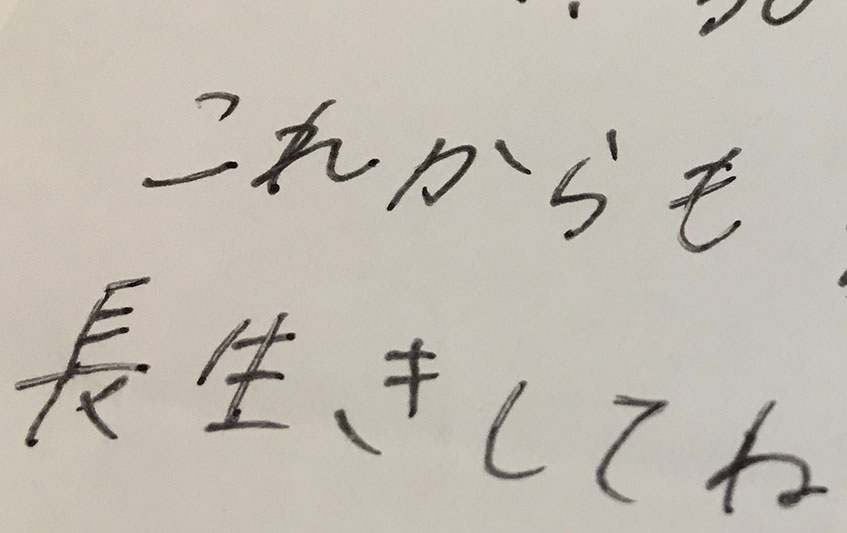 これからも
長生きしてね